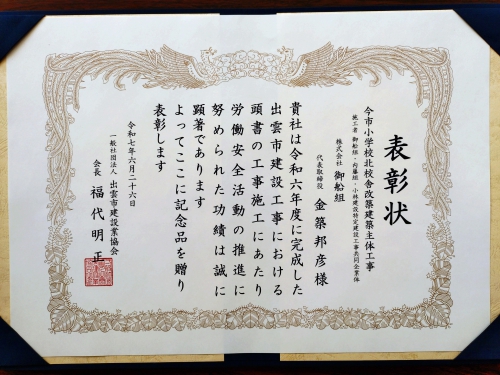 表彰状
今市小学校北校舎改築建築主体工事
施工者 御船組・内藤組・小林建設特定建設工事共同企業体
株式会社 御船組
代表取締役 金築邦彦様
貴社は令和六年度に完成した
出雲市建設工事における
頭書の工事施工にあたり
労働安全活動の推進に
努められた功績は誠に
顕著であります
よってここに記念品を贈り
表彰します
令和七年六月二十六日
一般社団法人 出雲市建設業協会
会長 福代明正